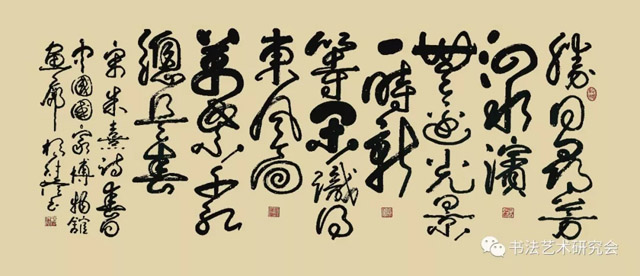 勝日尋芳
泗水濱
無邊光景
一時新
等閑識得
東風面
萬紫千紅
總是春
宋朱熹詩春日
中國國家博物館
畫廊
书法艺术研究会